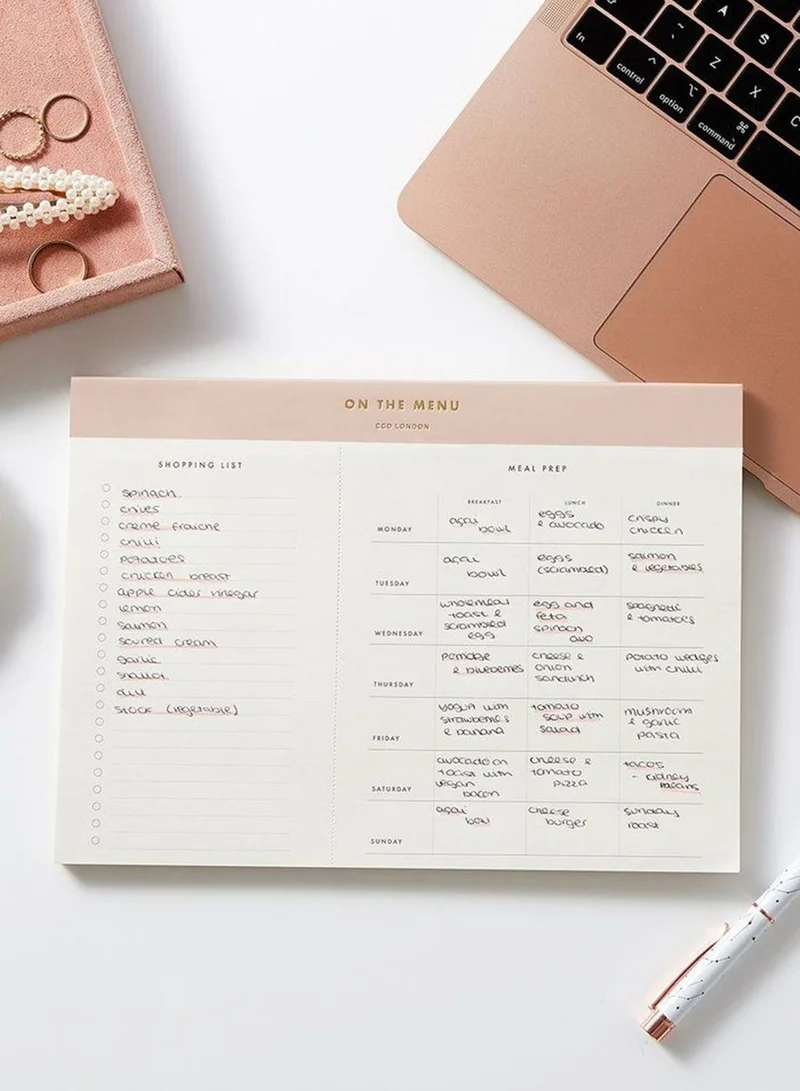 fn
control
^
option
⌥
command
⌘
~
A
S
Z
X
C
ON THE MENU
CGD LONDON
SHOPPING LIST
spinach
chives
creme fraiche
chilli
potatoes
chicken breast
apple cider vinegar
lemon
salmon
soured cream
garlic
shallot
dill
stock (vegetable)
MEAL PREP
BREAKFAST
LUNCH
DINNER
MONDAY
açai
bowl
eggs
& avocado
crispy
chicken
TUESDAY
açai
bowl
eggs
(scrambled)
salmon
& vegetables
WEDNESDAY
wholemeal
toast &
scrambled
egg
egg and
feta
spinach
avo
spaghetti
& tomatoes
THURSDAY
porridge
& blueberries
cheese &
onion
sandwich
potato wedges
with chilli
FRIDAY
yogurt with
strawberries
& banana
tomato
soup with
salad
mushroom
& garlic
pasta
SATURDAY
avocado on
toast with
vegan
bacon
cheese &
tomato
pizza
tacos
- kidney
beans
SUNDAY
açai
bowl
cheese
burger
sunday
roast